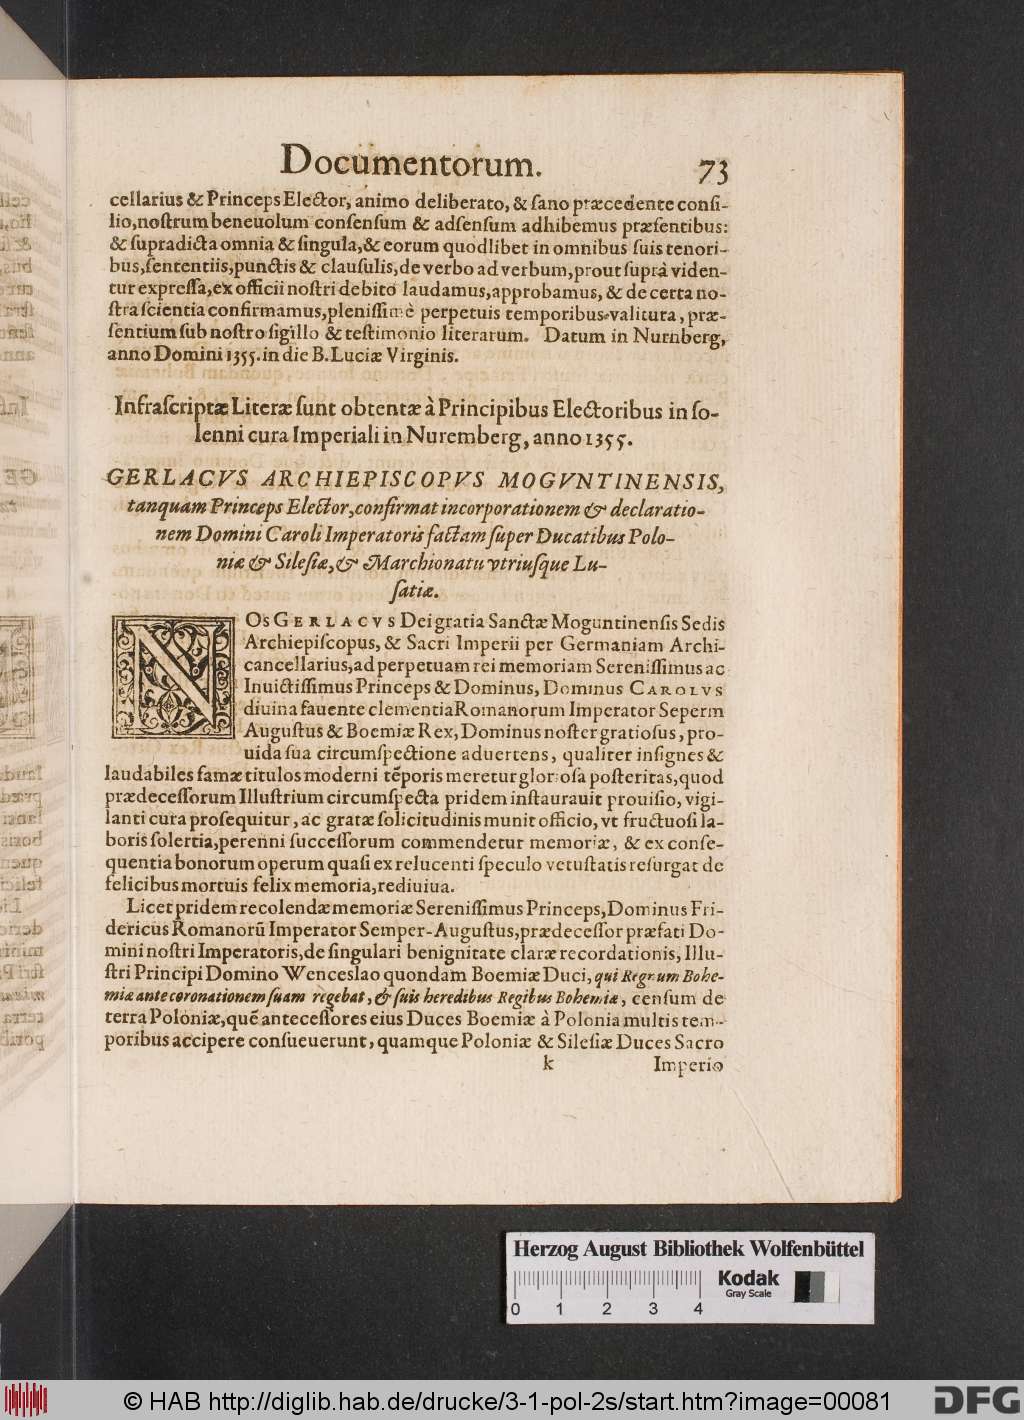 Documentorum. 73
cellarius & Princeps Elector, animo deliberato, & sano præcedente consi-
lio, nostrum beneuolum consensum & adsensum adhibemus præsentibus:
& supradicta omnia & singula, & eorum quodlibet in omnibus suis tenori-
bus, sententiis, punctis & clausulis, de verbo ad verbum, prout suprà viden-
tur expressa, ex officii nostri debito laudamus, approbamus, & de certa no-
stra scientia confirmamus, plenissimè perpetuis temporibus valitura, præ-
sentium sub nostro sigillo & testimonio literarum. Datum in Nurnberg,
anno Domini 1355. in die B. Luciæ Virginis.
Infrascriptæ Literæ sunt obtentæ à Principibus Electoribus in so-
lenni cura Imperiali in Nuremberg, anno 1355.
GERLACVS ARCHIEPISCOPVS MOGVNTINENSIS,
tanquam Princeps Elector, confirmat incorporationem & declaratio-
nem Domini Caroli Imperatoris factam super Ducatibus Polo-
niæ & Silesiæ, & Marchionatu vtriusque Lu-
satiæ.
NOs GERLACVS Dei gratia Sanctæ Moguntinensis Sedis
Archiepiscopus, & Sacri Imperii per Germaniam Archi-
cancellarius, ad perpetuam rei memoriam Serenissimus ac
Inuictissimus Princeps & Dominus, Dominus CAROLVS
diuina fauente clementia Romanorum Imperator Seperm
Augustus & Boemiæ Rex, Dominus noster gratiosus, pro-
uida sua circumspectione aduertens, qualiter insignes &
laudabiles famæ titulos moderni tẽporis meretur gloriosa posteritas, quod
prædecessorum Illustrium circumspecta pridem instaurauit prouisio, vigi-
lanti cura prosequitur, ac gratæ solicitudinis munit officio, vt fructuosi la-
boris solertia, perenni successorum commendetur memoriæ, & ex conse-
quentia bonorum operum quasi ex relucenti speculo vetustatis resurgat de
felicibus mortuis felix memoria, rediuiua.
Licet pridem recolendæ memoriæ Serenissimus Princeps, Dominus Fri-
dericus Romanorũ Imperator Semper-Augustus, prædecessor præfati Do-
mini nostri Imperatoris, de singulari benignitate claræ recordationis, Illu-
stri Principi Domino Wenceslao quondam Boemiæ Duci, qui Regnum Bohe-
miæ ante coronationem suam regebat, & suis heredibus Regibus Bohemiæ, censum de
terra Poloniæ, quẽ antecessores eius Duces Boemiæ à Polonia multis tem-
poribus accipere consueuerunt, quamque Poloniæ & Silesiæ Duces Sacro
k Imperio
Herzog August Bibliothek Wolfenbüttel
Kodak
Gray Scale
0 1 2 3 4
© HAB http://diglib.hab.de/drucke/3-1-pol-2s/start.htm?image=00081
DFG